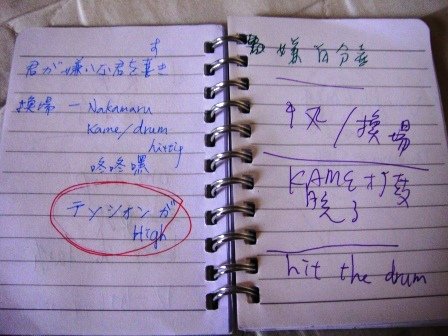 す
君が嫌いな君を
換場 — Nakamaru
Kame/drum
hittig
咚咚嘿
テンションが
High
嫌百分
中丸/換場
KAME打鼓
脫了
hit the drum